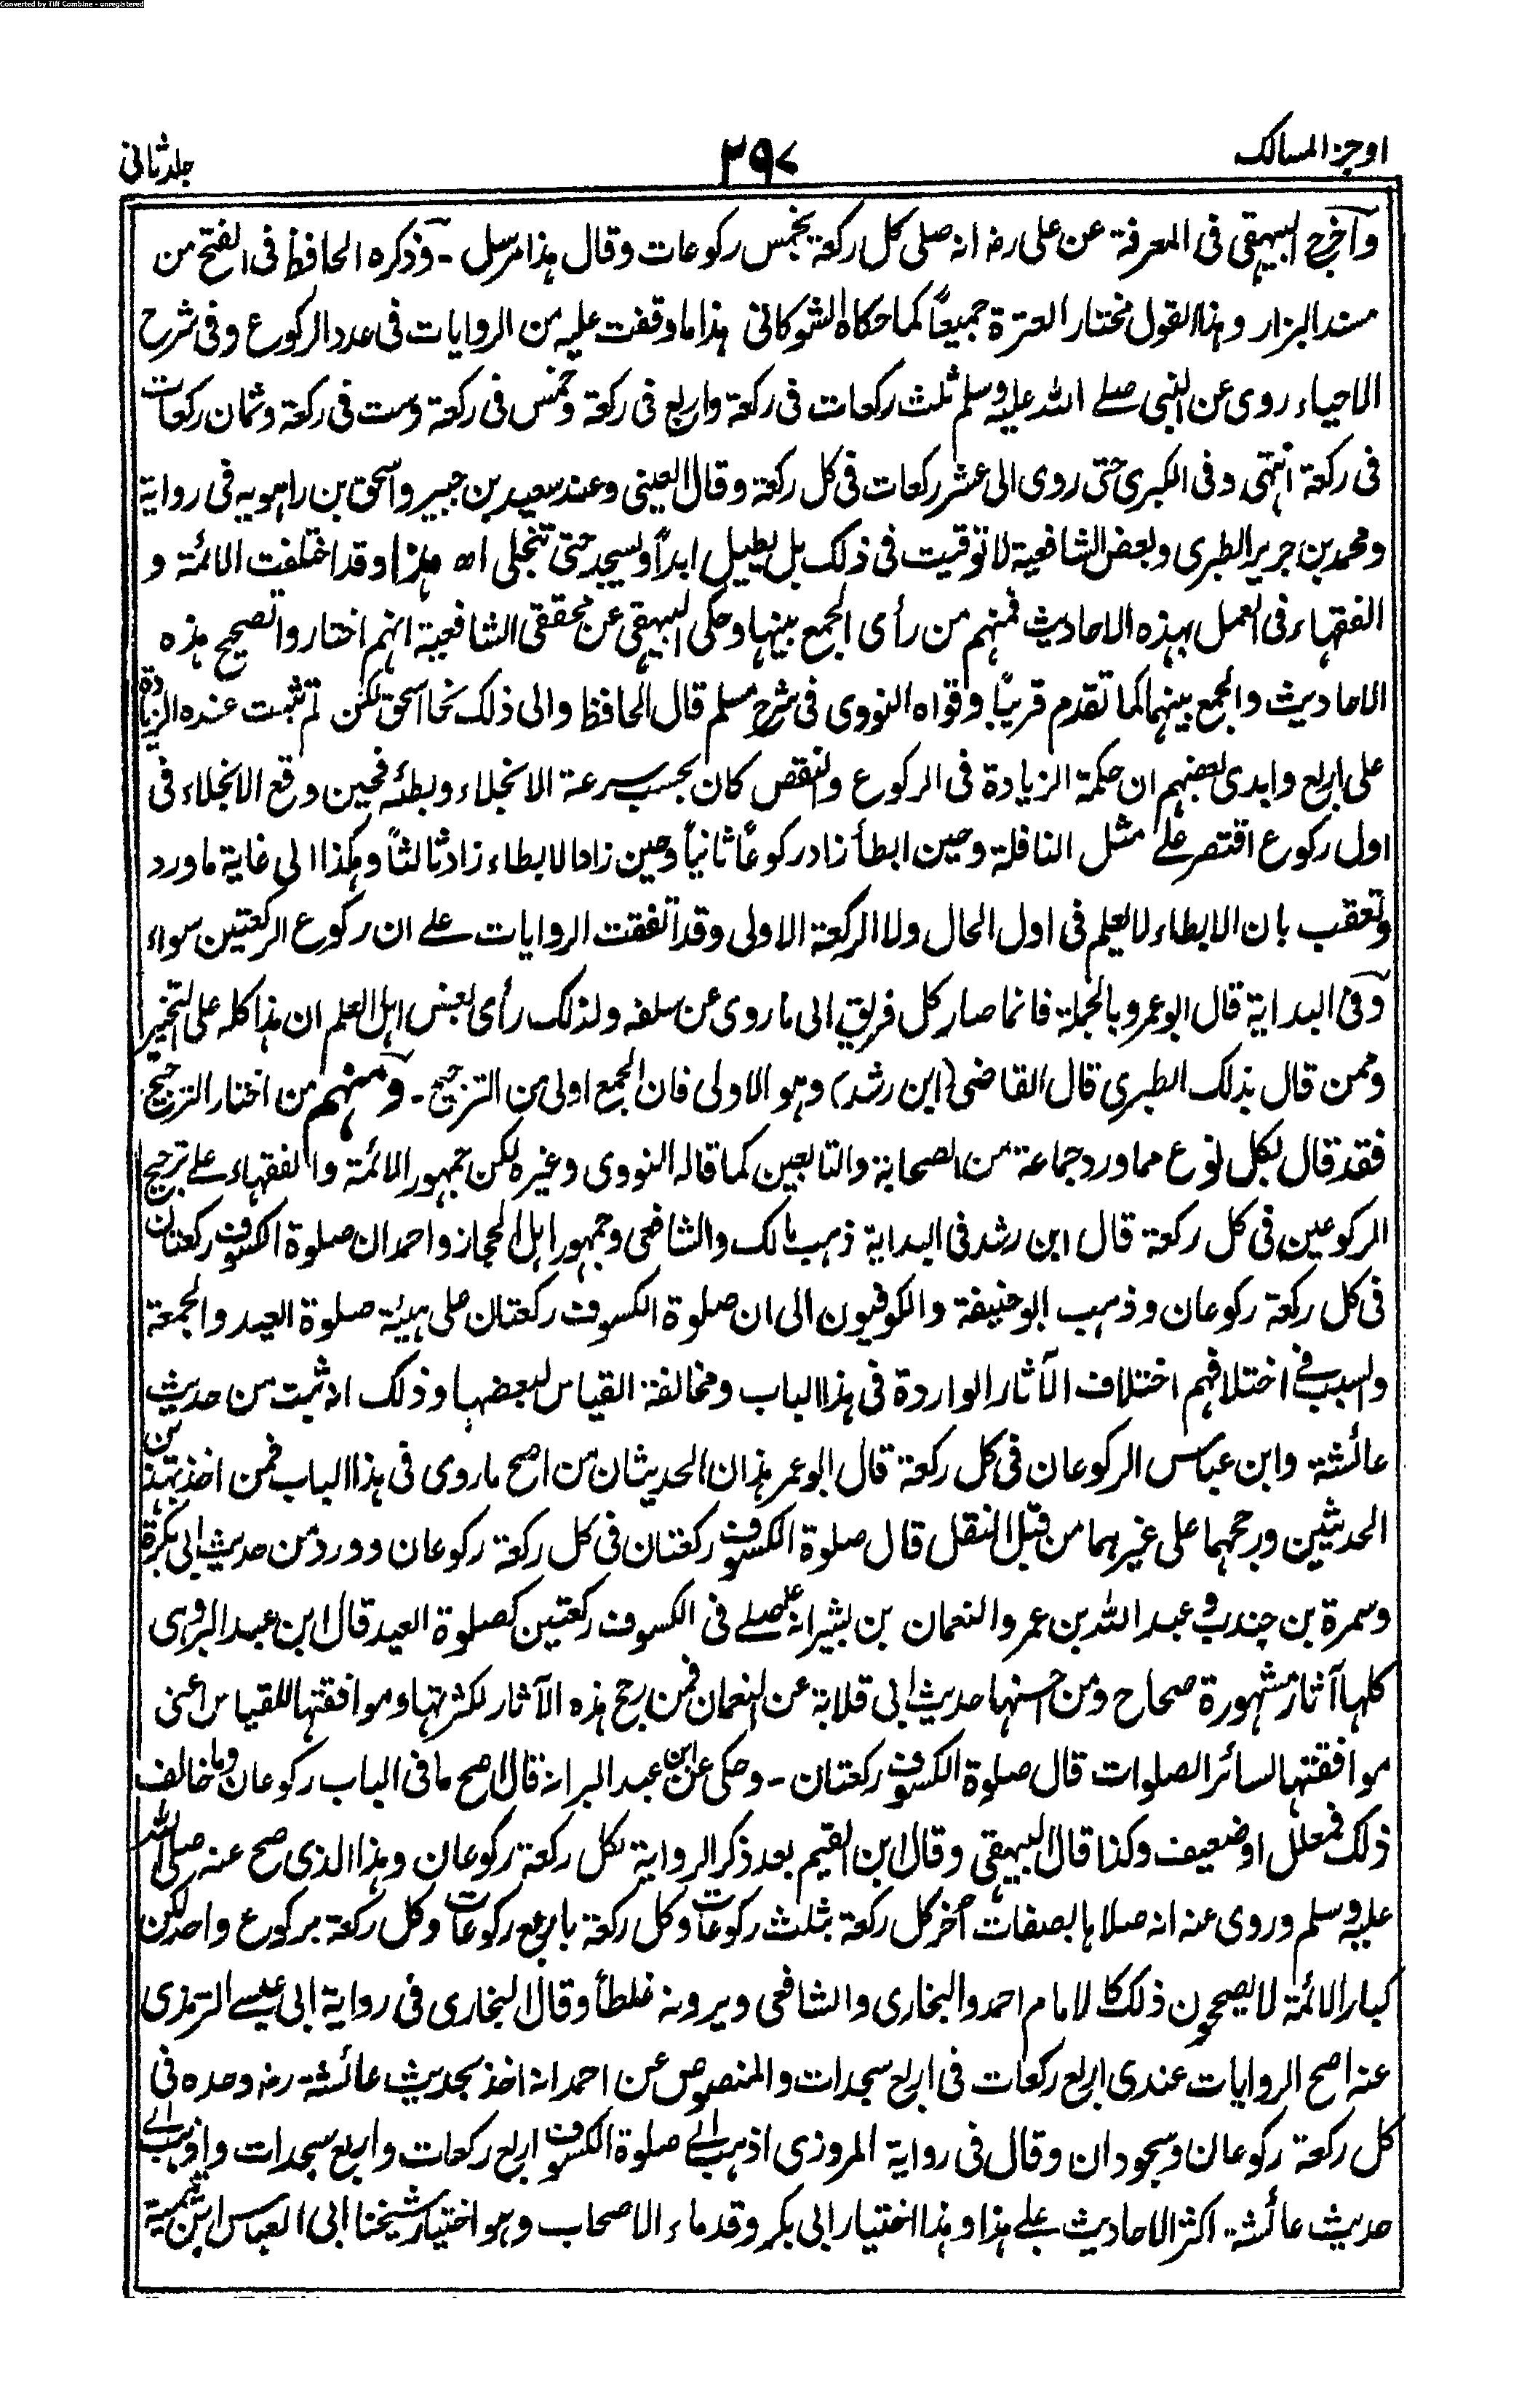 Converted by Tiff Combine - unregistered
اوجز المسالك
٢٩٧
جلد ثانی
وآخرج البیهقی فی المعرفة عن علی رضـ انه صلی کل رکعة بخمس رکوعات وقال هذا مرسل - وذکره الحافظ فی الفتح من
مسند البزار وهذا القول مختار العترة جمیعاً کما حکاه الشوکانی هذا ما وقفت علیه من الروایات فی عدد الرکوع وفی شرح
الاحیاء روی عن النبی صلے الله علیه وسلم ثلث رکعات فی رکعة واربع فی رکعة وخمس فی رکعة وست فی رکعة وثمان رکعات
فی رکعة انتهی وفی الکبری حتی روی الی عشر رکعات فی کل رکعة وقال العینی وعند سعید بن جبیر واسحق بن راهویه فی روایة
ومحمد بن جریر الطبری وبعض الشافعیة لا توقیت فی ذلک بل یطیل ابداً ویسجد حتی تنجلی اھ هذا وقد اختلفت الائمة و
الفقهاء فی العمل بهذه الاحادیث فمنهم من رأی الجمع بینها وحکی البیهقی عن محققی الشافعیة انهم اختاروا تصحیح هذه
الاحادیث والجمع بینهما کما تقدم قریبًا وقواه النووی فی شرح مسلم قال الحافظ والی ذلک نحا اسحق لکن لم تثبت عنده الزیادة
علی اربع وابدی بعضهم ان حکمة الزیادة فی الرکوع والنقص کان بحسب سرعة الانجلاء وبطئه فحین وقع الانجلاء فی
اول رکوع اقتصر علے مثل النافلة وحین ابطأ زاد رکوعًا ثانیاً وحین زاد الابطاء زاد ثالثاً وهکذا الی غایة ما ورد
وتعقب بان الابطاء لا یعلم فی اول الحال ولا الرکعة الاولی وقد اتفقت الروایات علے ان رکوع الرکعتین سواء
وفی البدایة قال ابو عمرو بالجملة فانما صار کل فریق الی ما روی عن سلفه ولذلک رأی بعض اهل العلم ان هذا کله علی التخییر
وممن قال بذلک الطبری قال القاضی (ابن رشد) وهو الاولی فان الجمع اولی من الترجیح - ومنهم من اختار الترجیح
فقد قال بکل نوع مما ورد جماعة من الصحابة والتابعین کما قاله النووی وغیره لکن جمهور الائمة والفقهاء علے ترجیح
الرکوعین فی کل رکعة قال ابن رشد فی البدایة ذهب مالک والشافعی وجمهور اهل الحجاز واحمد ان صلوة الکسوف رکعتان
فی کل رکعة رکوعان وذهب ابو حنیفة والکوفیون الی ان صلوة الکسوف رکعتان علی هیئة صلوة العید والجمعة
والسبب فے اختلافهم اختلاف الآثار الواردة فی هذا الباب ومخالفة القیاس لبعضها وذلک انه ثبت من حدیث
عائشة وابن عباس الرکوعان فی کل رکعة قال ابو عمر هذان الحدیثان من اصح ما روی فی هذا الباب فمن اخذ بهذین
الحدیثین ورجحهما علی غیرهما من قبل النقل قال صلوة الکسوف رکعتان فی کل رکعة رکوعان وورد من حدیث ابی بکرة
وسمرة بن جندب وعبد الله بن عمر والنعمان بن بشیر انه صلے فی الکسوف رکعتین کصلوة العید قال ابن عبد البر وهی
کلها آثار مشهورة صحاح ومن احسنها حدیث ابی قلابة عن النعمان فمن رجح هذه الآثار لکثرتها وموافقتها للقیاس اعنی
موافقتها لسائر الصلوات قال صلوة الکسوف رکعتان - وحکی عن ابن عبد البر انه قال اصح ما فی الباب رکوعان وما خالف
ذلک فمعلل او ضعیف وکذا قال البیهقی وقال ابن القیم بعد ذکر الروایة بکل رکعة رکوعان وهذا الذی صح عنه صلی الله
علیه وسلم وروی عنه انه صلاها بصفات اُخر کل رکعة بثلث رکوعات وکل رکعة باربع رکوعات وکل رکعة برکوع واحد لکن
کبار الائمة لا یصححون ذلک کالامام احمد والبخاری والشافعی ویرونه غلطاً وقال البخاری فی روایة ابی عیسے الترمذی
عنه اصح الروایات عندی اربع رکعات فی اربع سجدات والمنصوص عن احمد انه اخذ بحدیث عائشة رضـ وحده فی
کل رکعة رکوعان وسجودان وقال فی روایة المروزی اذهب الے صلوة الکسوف اربع رکعات واربع سجدات واذهب الے
حدیث عائشة اکثر الاحادیث علے هذا وهذا اختیار ابی بکر وقدماء الاصحاب وهو اختیار شیخنا ابی العباس ابن تیمیة